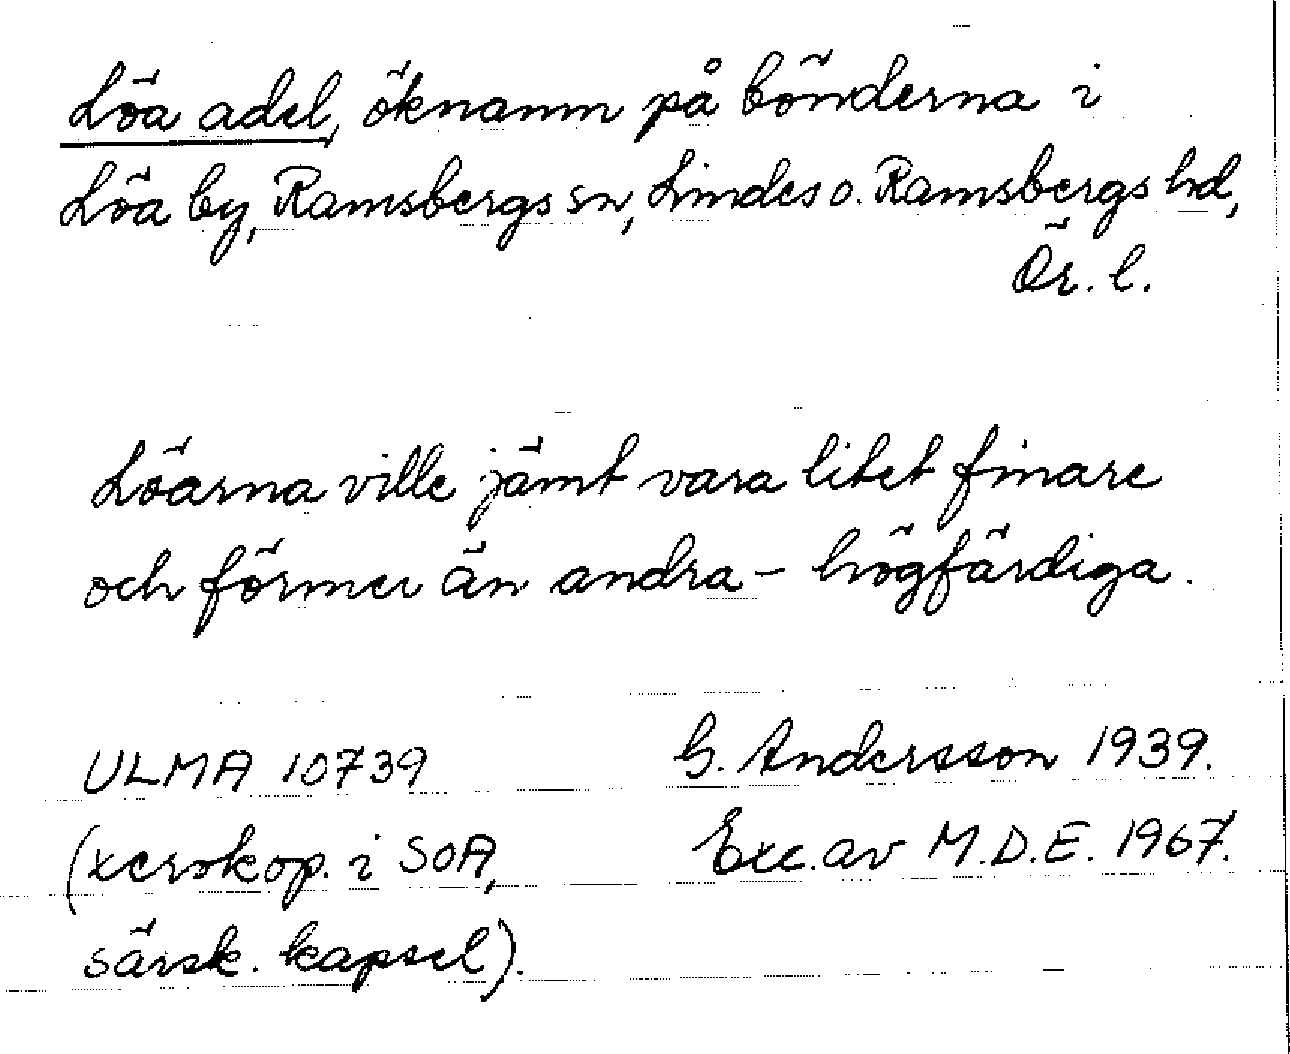 Löa adel, öknamn på bönderna i
Löa by, Ramsbergs sn, Lindes o. Ramsbergs hd,
Ör. l.
Löarna ville jämt vara litet finare
och förmer än andra – högfärdiga.
ULMA 10739
G. Andersson 1939.
(xerokop. i SOA,
Exc. av M.D.E. 1967.
särsk. kapsel).